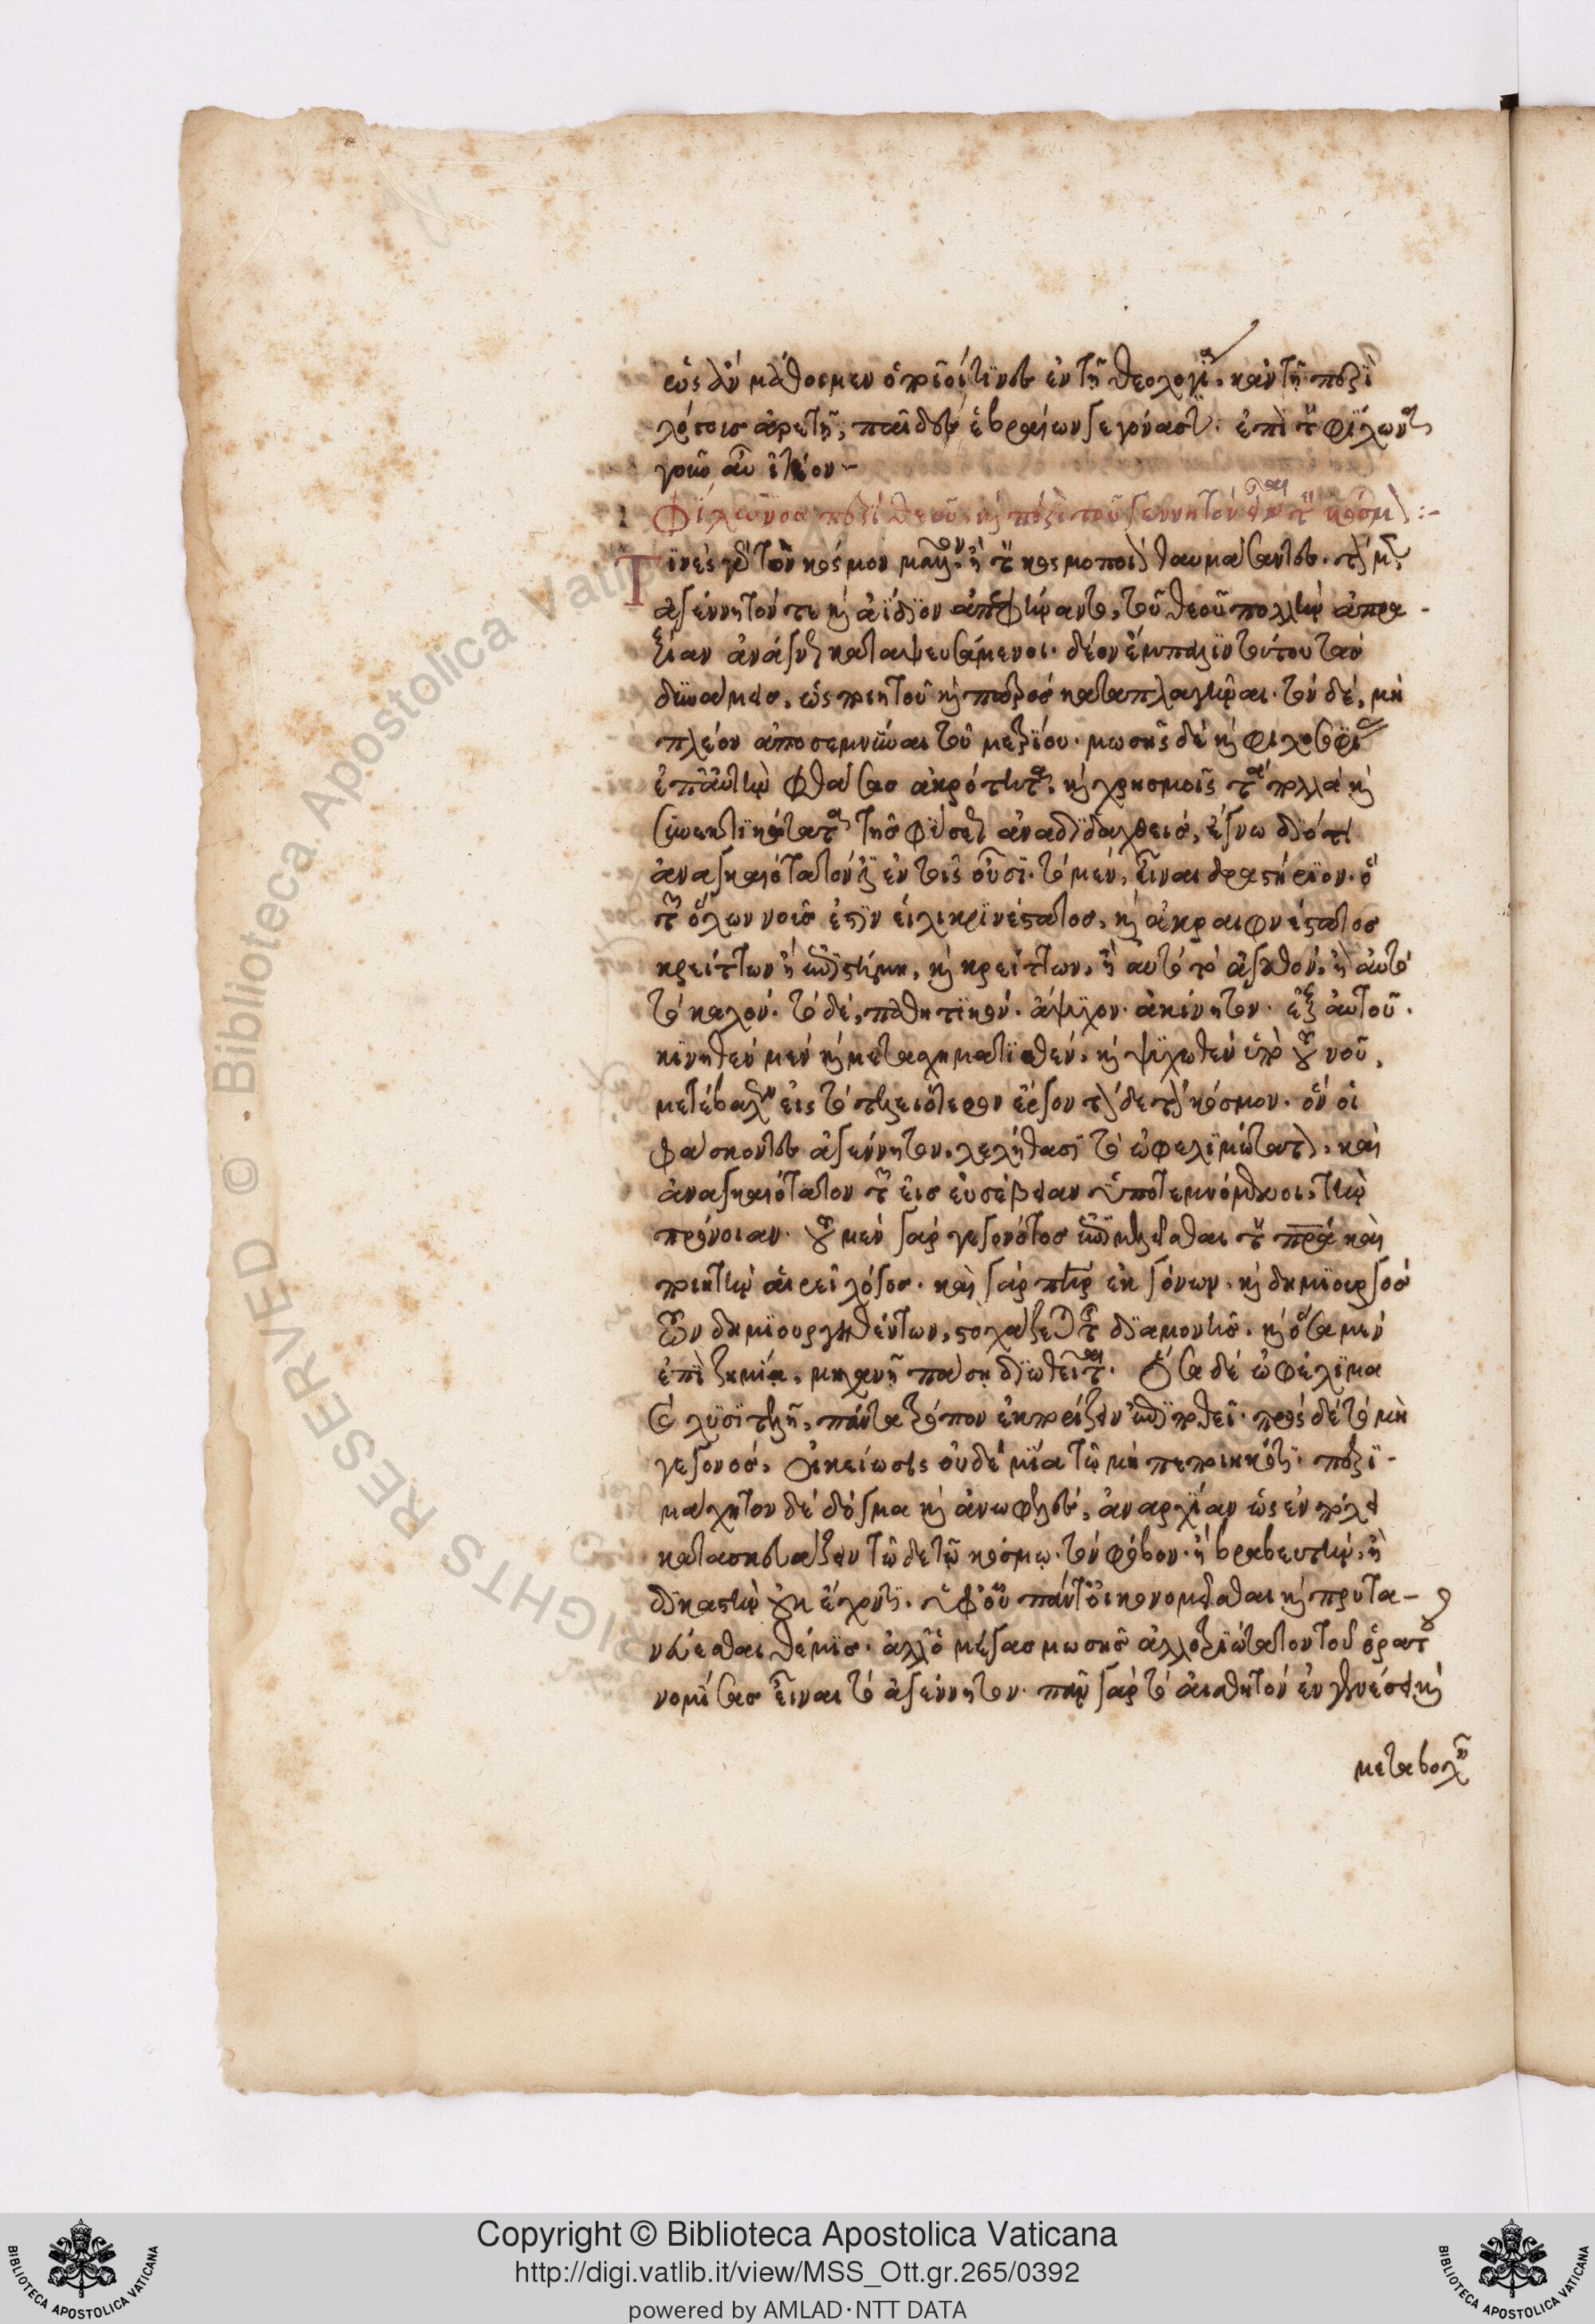 ὡς ἂν μάθοιμεν ὁποῖοί τινες ἐν τῇ θεολογίᾳ, κἀν τῇ περὶ
λόγοις ἀρετῇ, παῖδες ἑβραίων γεγόνασι. ἐπὶ τὸν φίλωνα
γοῦν αὖ ἰτέον
Φίλωνος περὶ θεοῦ, καὶ περὶ τοῦ γεννητὸν εἶναι τὸν κόσμον:-
Τινὲς γὰρ τὸν κόσμον μᾶλλον ἢ τὸν κοσμοποιὸν θαυμάσαντες. τὸν μὲν
ἀγέννητόν τε καὶ ἀΐδιον ἀποφήναντες, τοῦ θεοῦ πολλὴν ἀπρα-
ξίαν ἀνάγνως καταψευσάμενοι. δέον ἔμπαλιν τούτου τὰς
δυνάμεις, ὡς ποιητοῦ καὶ πατρὸς καταπλαγῆναι. τὸν δὲ, μὴ
πλέον ἀποσεμνῦναι τοῦ μετρίου. μωσῆς δὲ καὶ φιλοσοφίας
ἐπ' αὐτὴν φθάσας ἀκρότητα, καὶ χρησμοῖς τὰ πολλὰ καὶ
συνεκτικώτατα τῆς φύσεως ἀναδιδαχθεὶς, ἔγνω διότι
ἀναγκαιότατόν ἐστιν ἐν τοῖς οὖσι. τὸ μὲν, εἶναι δραστήριον. ὁ
τῶν ὅλων νοῦς ἐστιν εἰλικρινέστατος, καὶ ἀκραιφνέστατος
κρείττων ἢ ἐπιστήμη, καὶ κρείττων, ἢ αὐτὸ τὸ ἀγαθὸν, ἢ αὐτὸ
τὸ καλόν. τὸ δὲ, παθητικὸν. ἄψυχον. ἀκίνητον. ἐξ αὐτοῦ.
κινηθὲν μὲν καὶ μετασχηματισθὲν, καὶ ψυχωθὲν ὑπὸ τοῦ νοῦ,
μετέβαλεν εἰς τὸ τελειότερον ἔργον τόνδε τὸν κόσμον. ὃν οἱ
φάσκοντες ἀγέννητον, λελήθασι τὸ ὠφελιμώτατον, καὶ
ἀναγκαιότατον τῶν εἰς εὐσέβειαν ὑποτεμνόμενοι, τὴν
πρόνοιαν. τοῦ μὲν γὰρ γεγονότος ἐπιμελεῖσθαι τὸν πρα καὶ
ποιητὴν αἱρεῖ λόγος. καὶ γὰρ πατὴρ ἐκ γόνων. καὶ δημιουργὸς
τῶν δημιουργηθέντων, στοχάζεται τῆς διαμονῆς. καὶ ὅσα μὲν
ἐπὶ ζημίᾳ, μηχανῇ πάσῃ διωθεῖται. ὅσα δὲ ὠφέλιμα
καὶ λυσιτελῆ, πάντα τρόπον ἐκπορίζειν ἐπιποθεῖ. πρὸς δὲ τὸ μὴ
γεγονὸς, οἰκείωσις οὐδεμία τῷ μὴ πεποιηκότι. περι-
μάχητον δὲ δόγμα καὶ ἀνωφελὲς, ἀναρχίαν ὡς ἐν πόλει
κατασκευάζειν τῷδε τῷ κόσμῳ. τὸν ἔφορον. ἢ βραβευτὴν, ἢ
δικαστὴν οὐκ ἔχοντι. ὑφ' οὗ πάντ' οἰκονομεῖσθαι καὶ πρυτα-
νεύεσθαι θέμις. ἀλλ' ὁ μέγας μωσῆς ἀλλοτριώτατον τοῦ ὁρατοῦ
νομίσας εἶναι τὸ ἀγέννητον. πᾶν γὰρ τὸ αἰσθητὸν ἐν γενέσει καὶ
μεταβολαῖς
Copyright © Biblioteca Apostolica Vaticana
http://digi.vatlib.it/view/MSS_Ott.gr.265/0392
powered by AMLAD·NTT DATA